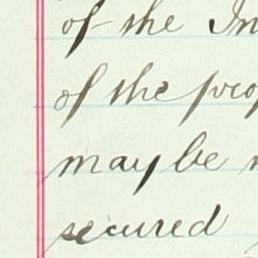 of the In
of the prop
may be
secured